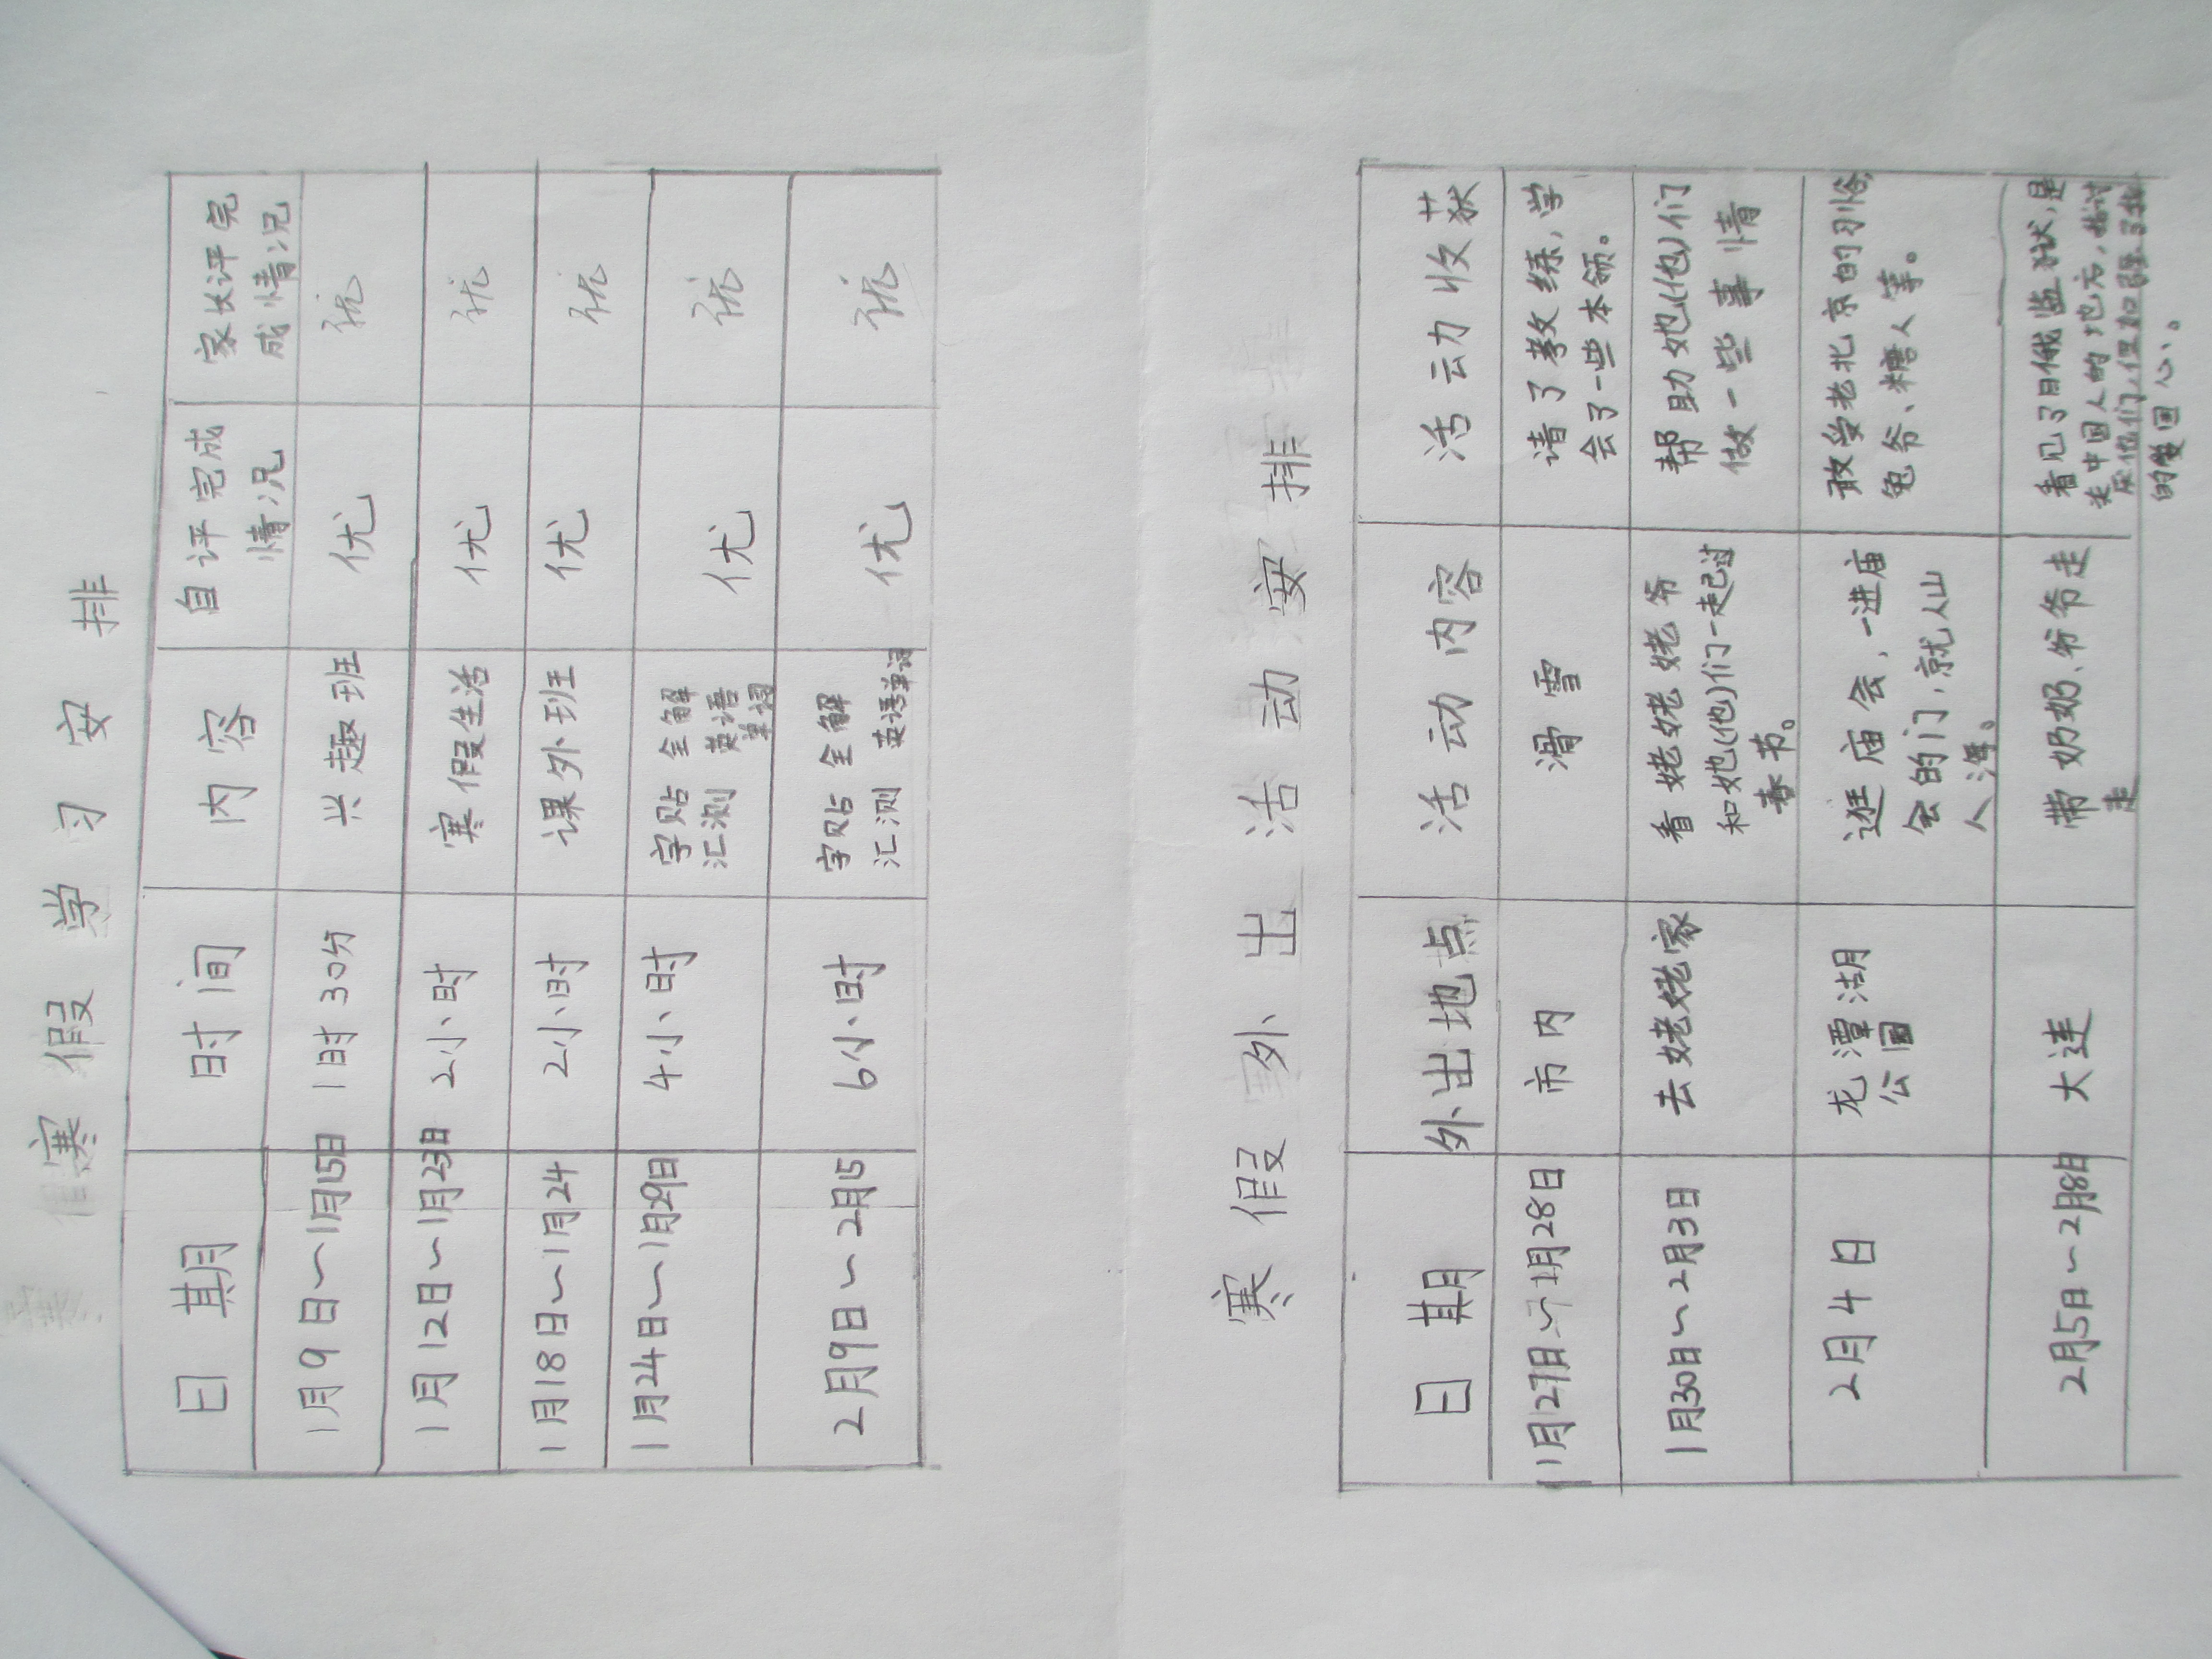 寒假学习安排
日期 时间 内容 自评完成情况 家长评完成情况
1月9日～1月15日 1时30分 兴趣班 优 优
1月12日～1月23日 2小时 寒假生活 优 优
1月18日～1月24 2小时 课外班 优 优
1月24日～1月29日 4小时 字贴 全解 汇测 英语单词 优 优
2月9日～2月15 6小时 字贴 全解 汇测 英语单词 优 优
寒假外出活动安排
日期 外出地点 活动内容 活动收获
1月27日～1月28日 市内 滑雪 请了教练,学会了一些本领。
1月30日～2月3日 去姥姥家 看姥姥姥爷和她(他)们一起过春节。 帮助她(他)们做一些事情
2月4日 龙潭湖公园 逛庙会,一进庙会的门,就人山人海。 敢受老北京的习俗,兔爷、糖人等。
2月5日～2月8日 大连 带奶奶、爷爷走走 看见了日俄监狱,是中国人的地方,他们,但加强了我的爱国心。